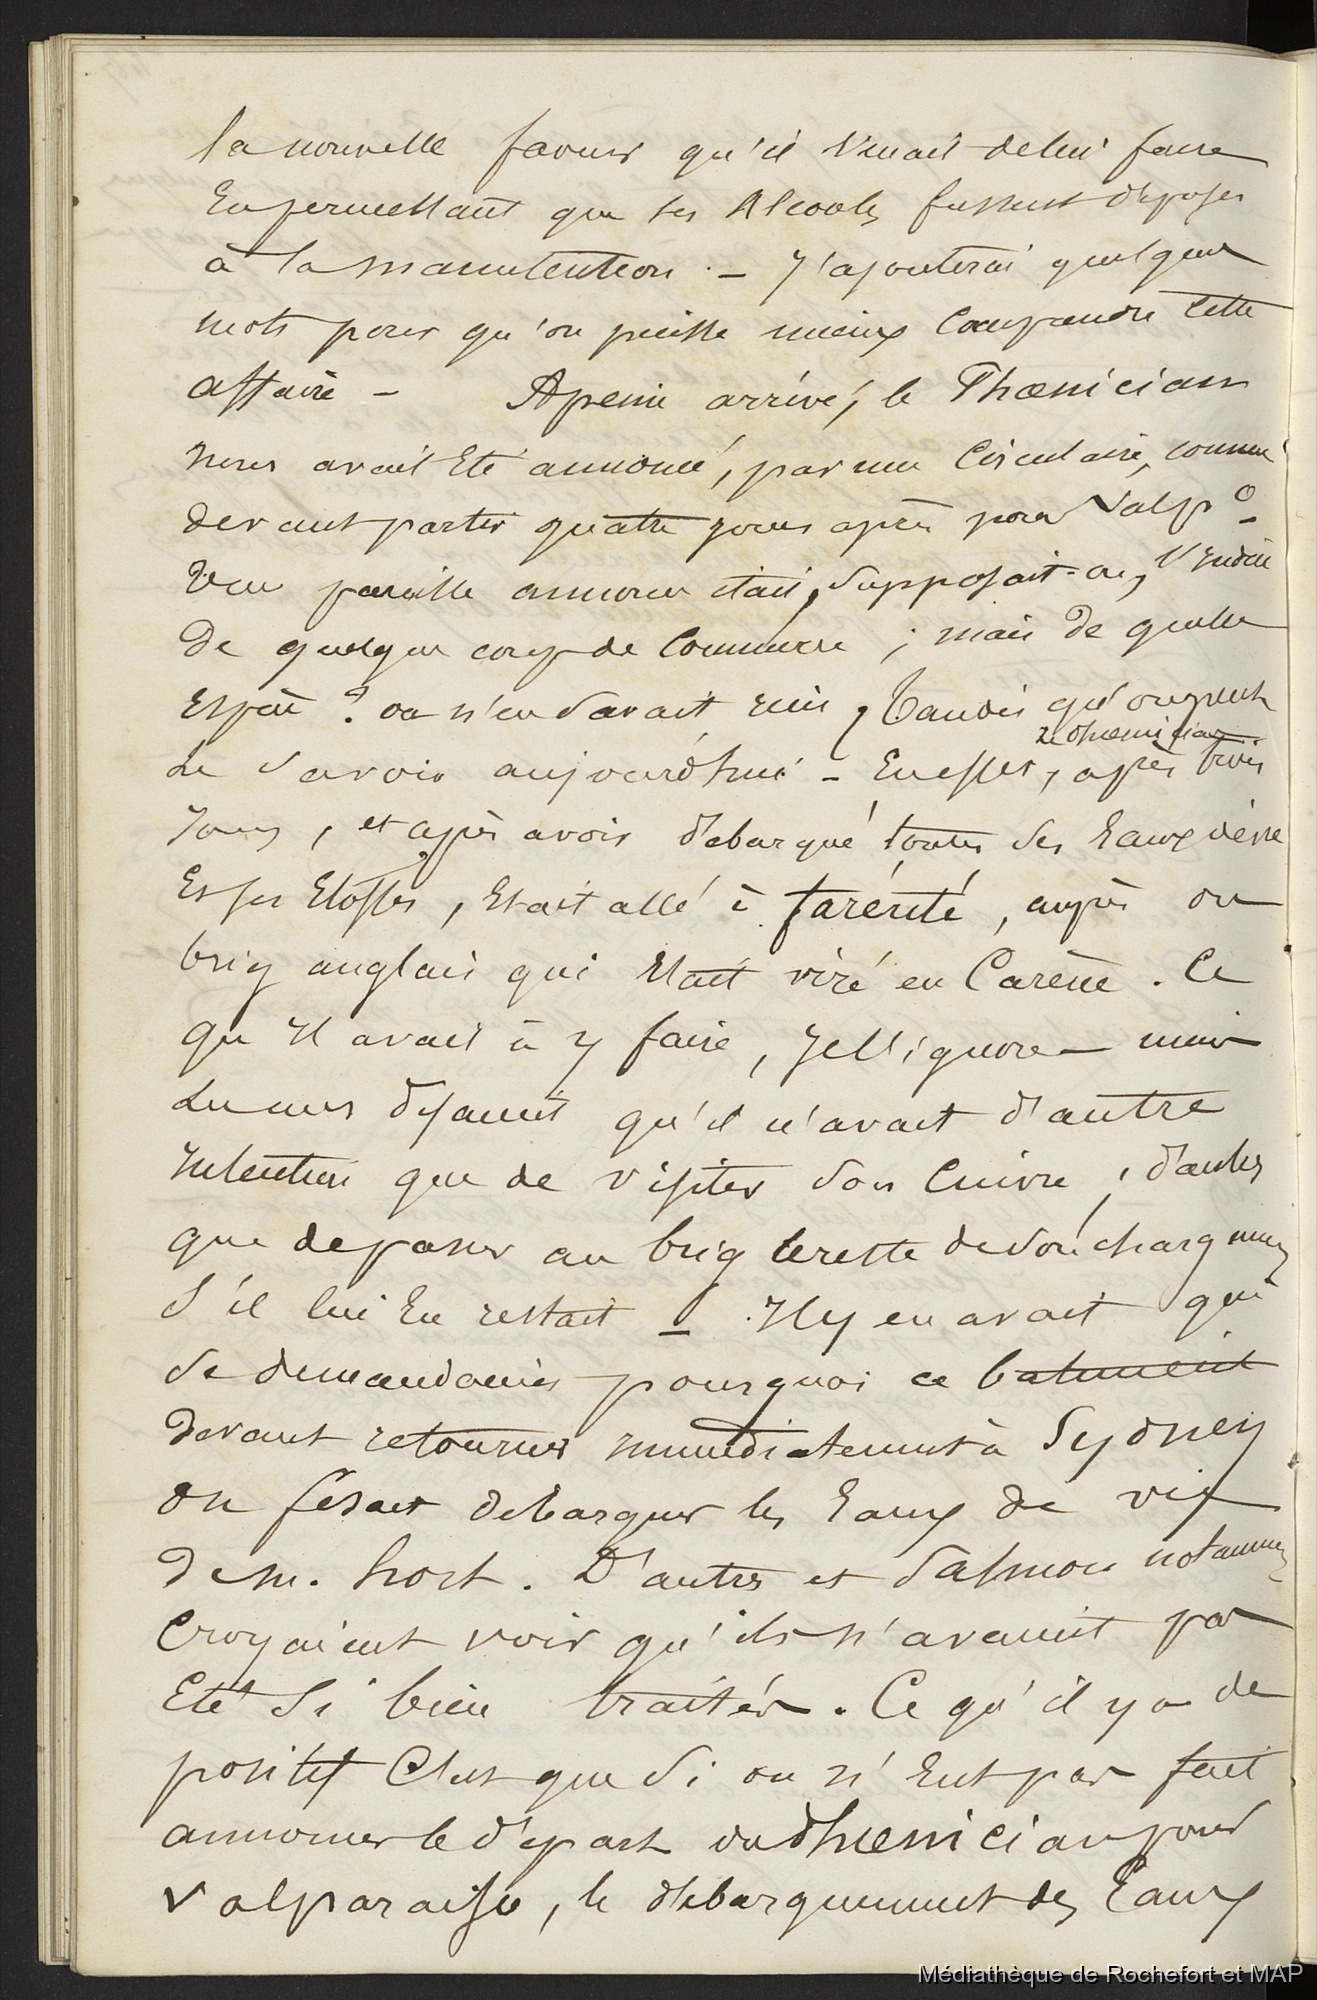 la nouvelle faveur qu'il venait de lui faire
En permettant que ses Alcools fussent déposés
à la manutention. — J'ajouterai quelques
mots pour qu'on puisse mieux Comprendre Cette
affaire — Apeine arrivé, le Phœnician
nous avait Eté annoncé, par une Circulaire, comme
devant partir quatre jours après pour Valp°
Une pareille annonce était, supposait-on, l'indice
de quelque coup de Commerce ; mais de quelle
Espèce ? on n'en savait rien, Tandis qu'on peut
Le Savoir aujourd'hui — En effet, après trois
le Phœnician
Jours, et après avoir débarqué toutes ses Eaux de vie
Et ses Etoffes, Etait allé à faréuté, auprès du
brig anglais qui Etait viré en Carène. Ce
qu'il avait à y faire, Je l'ignore — mais
Les uns disaient qu'il n'avait d'autre
Intention que de visiter son Cuivre ; d'autres
que de passer au brig le reste de son chargement
S'il lui En restait — Il y en avait qui
Se demandaient pourquoi ce batiment
devant retourner immédiatement à Sydney
on fesait débarquer les Eaux de vie
de M. hort. D'autres et Salmon notamment
Croyaient voir qu'ils n'avaient pas
Eté Si bien traités. Ce qu'il y a de
positif C'est que Si on n'Eut pas fait
annoncer le départ du Phœnician pour
Valparaiso, le débarquement des Eaux
Médiathèque de Rochefort et MAP